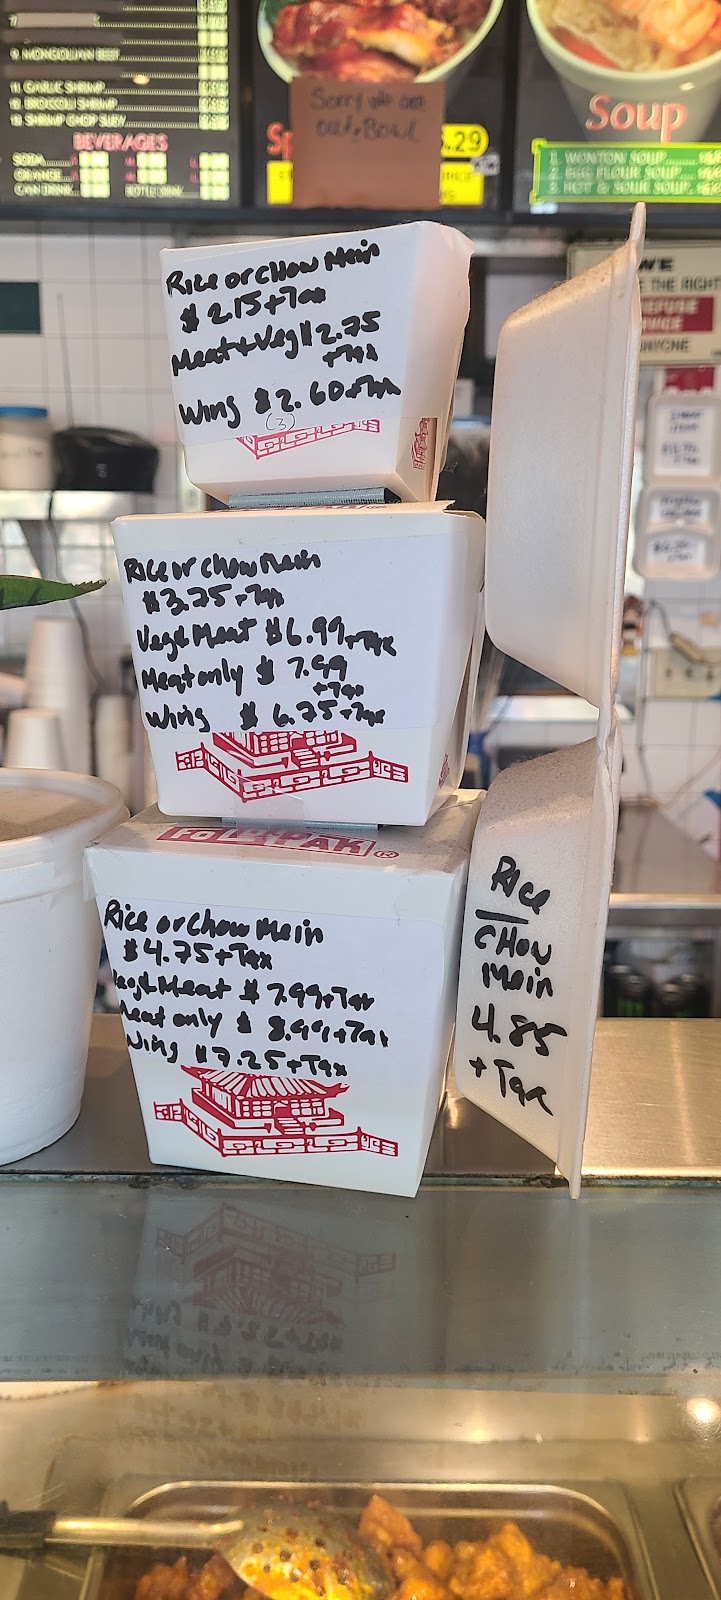 9. MONGOLIAN BEEF
11. GARLIC SHRIMP
12. BROCCOLI SHRIMP
13. SHRIMP CHOP SUEY
BEVERAGES
SODA
ORANGE
CAN DRINK
BOTTLE DRINK
Sorry we are
out, Bowl
.29
Soup
1. WONTON SOUP
2. EGG FLOUR SOUP
3. HOT & SOUR SOUP
WE
THE RIGHT
REFUSE
ANYONE
Rice or Chow Mein
$ 2.15 + Tax
Meat + Veg $ 2.75
+ Tax
Wing $ 2.60 + Tax
(3)
Rice or Chow Mein
$ 3.75 + Tax
Veg & Meat $ 6.99 + Tax
Meat only $ 7.99
+ Tax
Wing $ 6.75 + Tax
FOLD-PAK®
Rice or Chow Mein
$ 4.75 + Tax
Veg & Meat $ 7.99 + Tax
Meat only $ 8.99 + Tax
Wing $ 7.25 + Tax
Rice
Chow
Mein
4.85
+ Tax